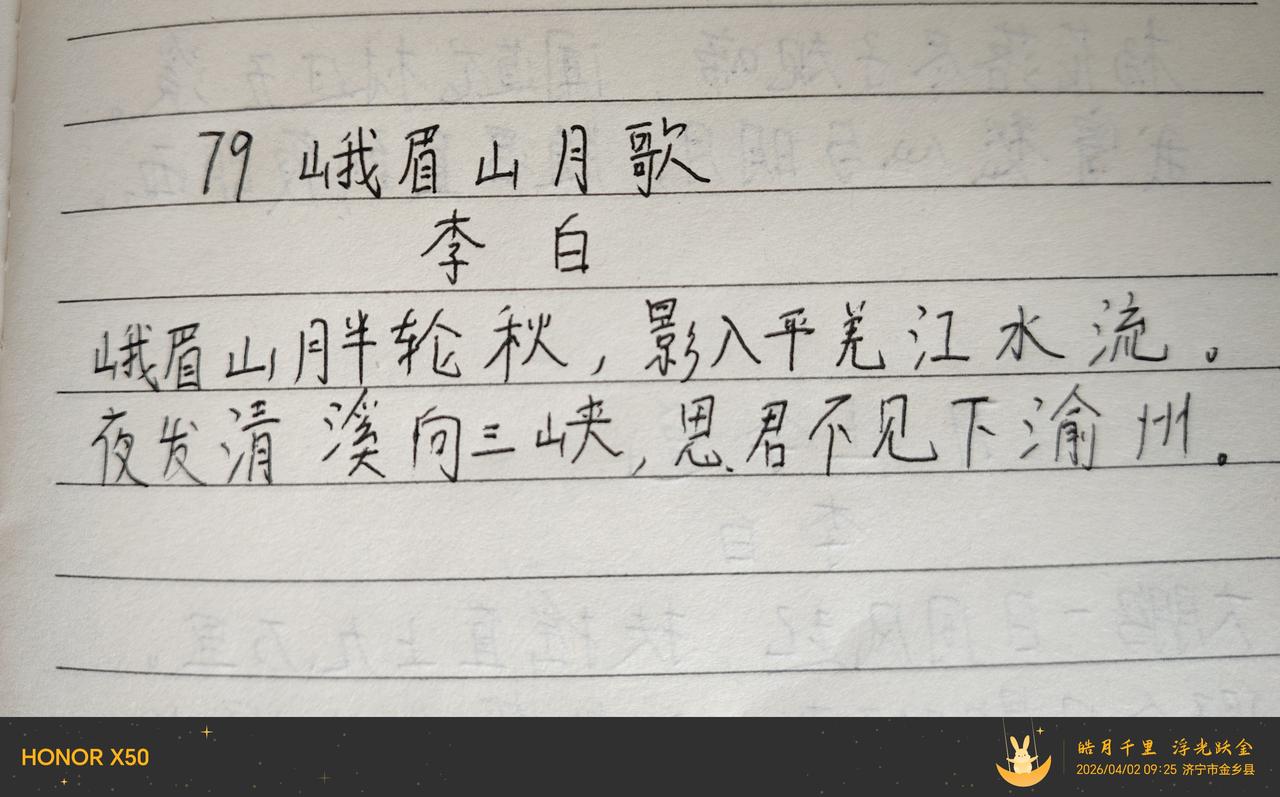 79 峨眉山月歌
李白
峨眉山月半轮秋，影入平羌江水流。
夜发清溪向三峡，思君不见下渝州。
HONOR X50
皓月千里 浮光跃金
2026/04/02 09:25 济宁市金乡县